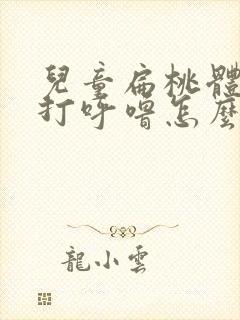 兒童扁桃體
打呼嚕怎麼
龍小雲